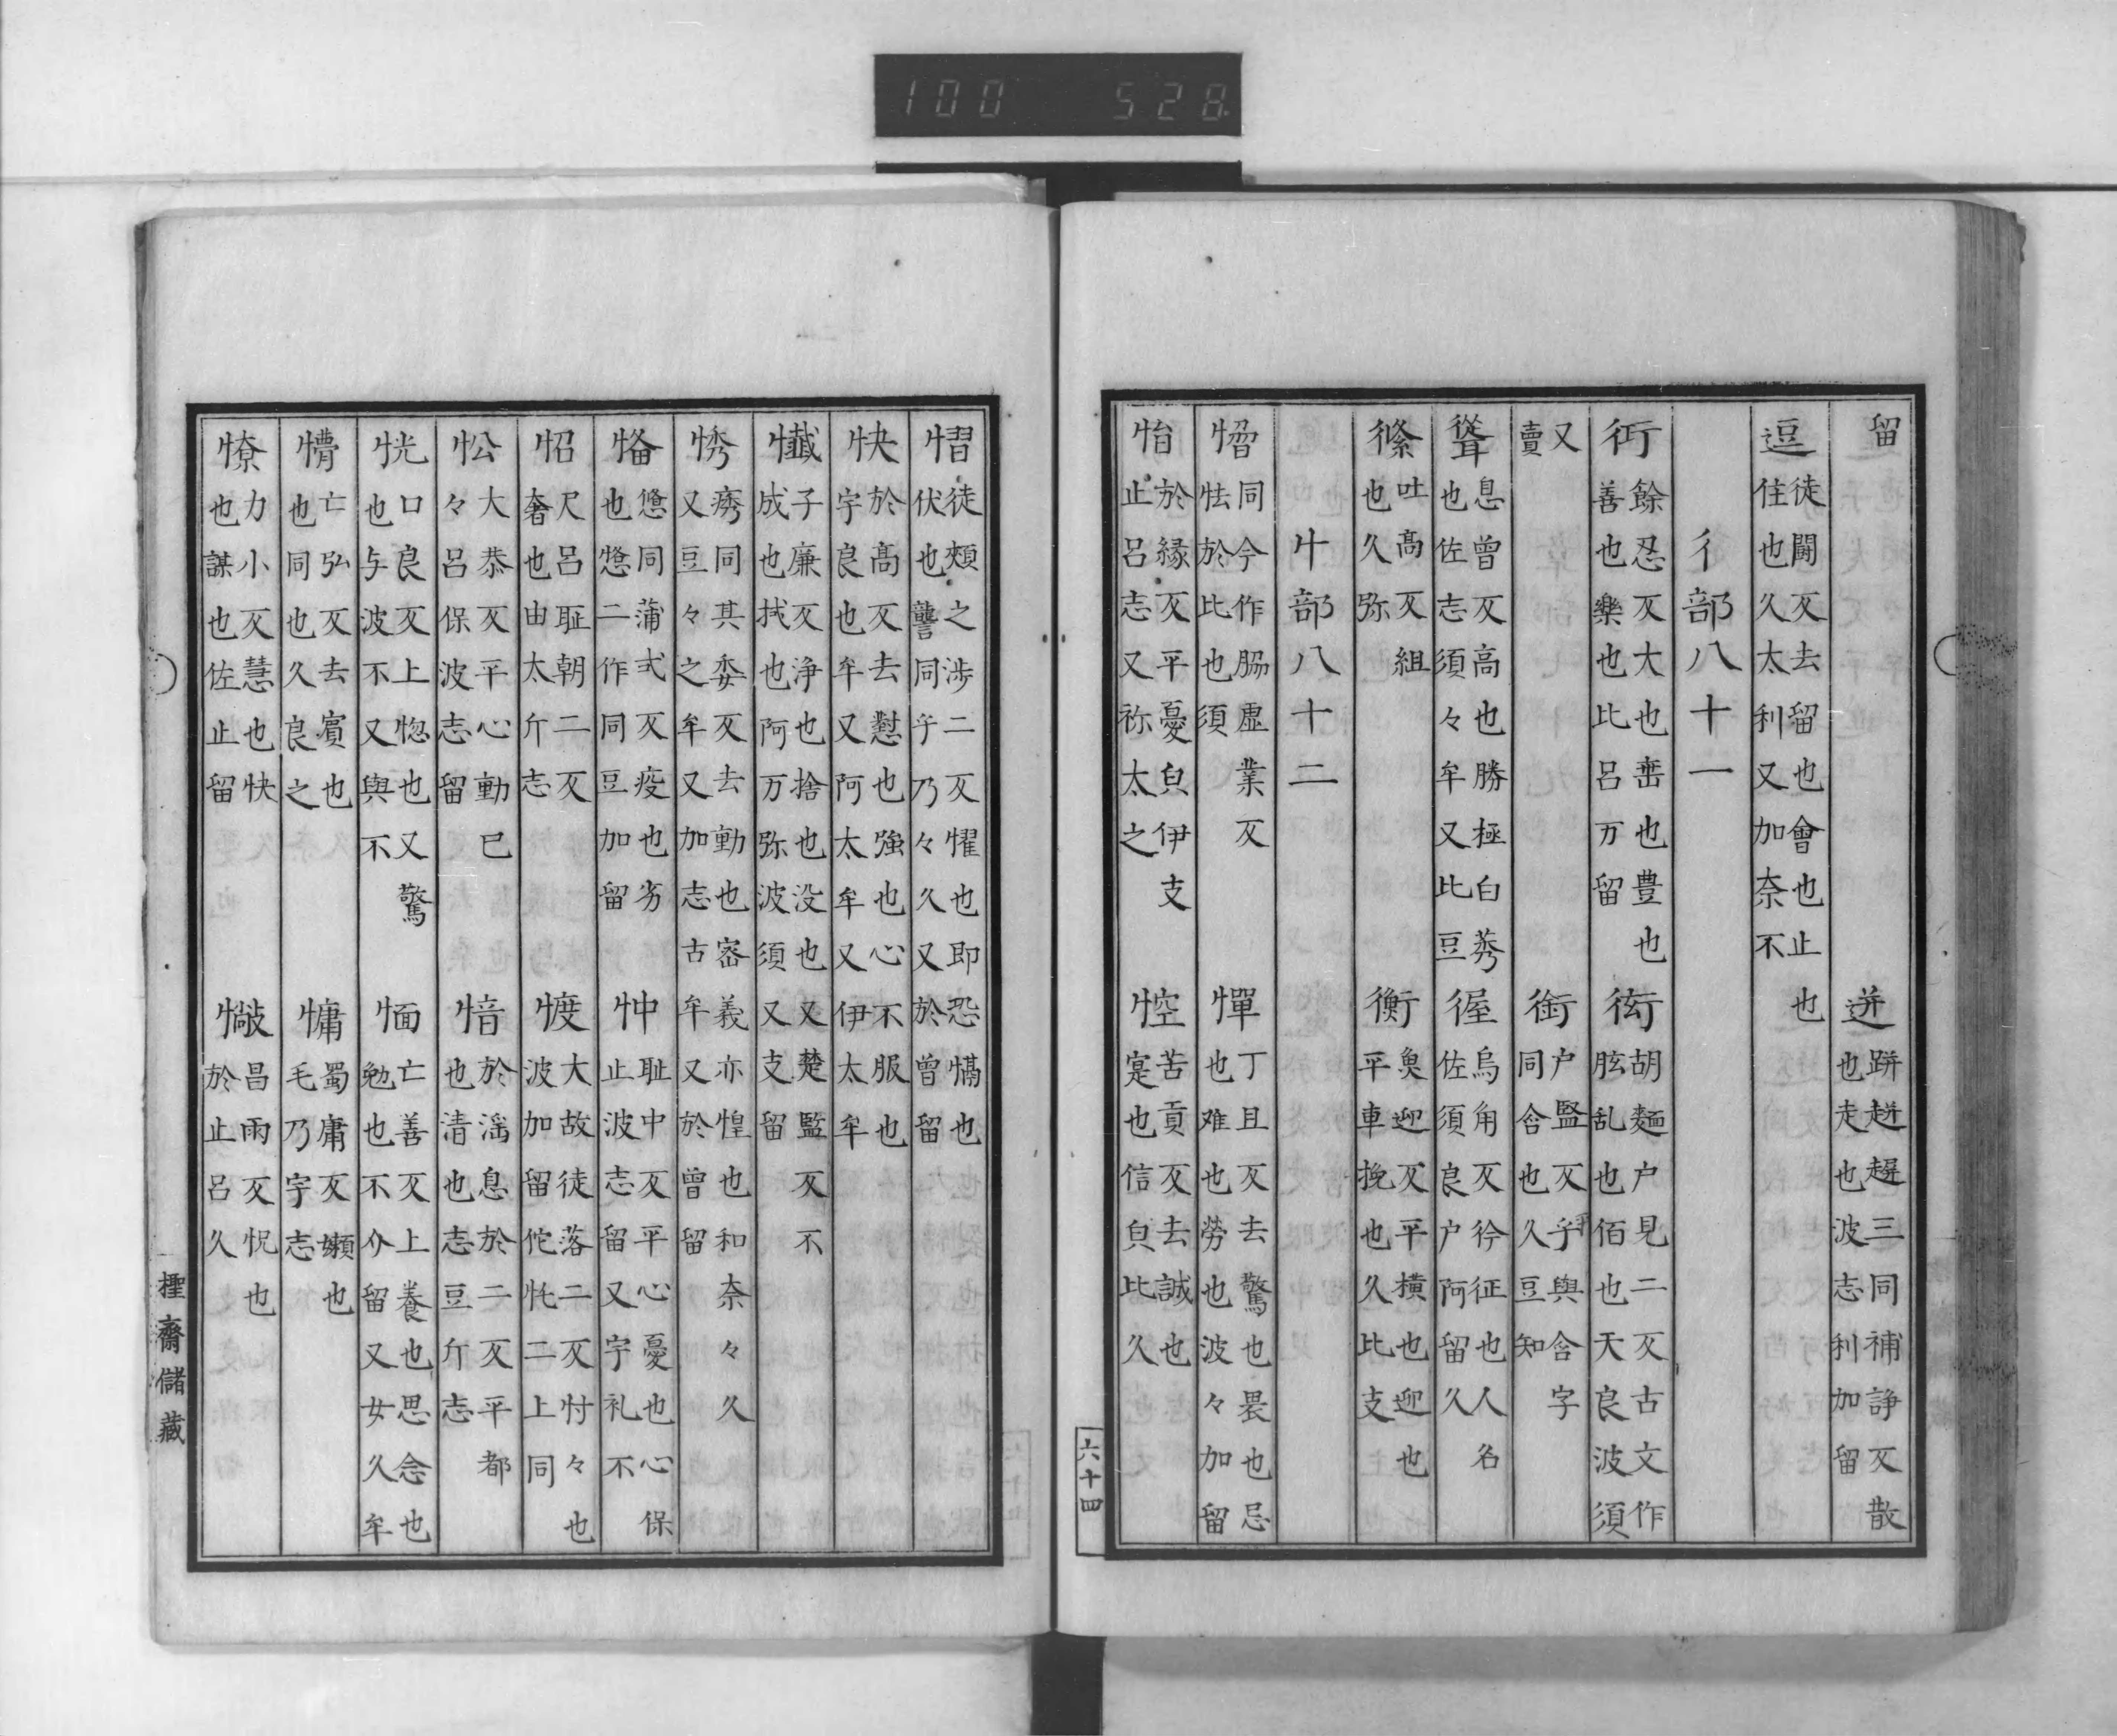 100 528
留 迸跰趀趕三同補諍反散也走也波志利加留
逗徒闘反去留也會也止也住也久太利又加奈不
彳部八十一
衎餘忍反大也㟧也豊也善也樂也比呂万留 衒胡麵户見二反古文作眩乱也佰也天良波須
又賣 銜户監反平与含字同含也久豆知
聳息曾反高也勝極白莠也佐志須々牟又比豆 㣪烏角反彾征也人名佐須良户阿留久
絛吐高反組也久弥 衡奥迎反平横也迎也平車挽也久比支
忄部八十二
愶同今作脇虛業反怯於比也須 憚丁且反去驚也畏也忌也难也勞也波々加留
㤪於縁反平憂㒵伊支止呂志又祢太之 悾苦貢反去誠也寔也信㒵比久
六十四
慴徒頰之涉二反懼也即恐懾也伏也讋同乎乃々久又於曾留
怏於高反去懟也強也心不服也宇良也牟又阿太牟又伊太牟
懺子廉反浄也捨也没也又楚監反不成也拭也阿万弥波須又支留
㤑痜同其季反去動也宻義亦惶也和奈々久又豆々之牟又加志古牟又於曾留
㤯㤹同蒲弍反疫也劣也憊二作同豆加留 忡耻中反平心憂也心保止波志留又宇礼不
怊尺呂耻朝二反奢也由太斤志 㦄大故徒落二反忖々也波加留侂㤞二上同
忪大恭反平心動已々呂保波志留 愔於滛息於二反平都也清也志豆斤志
恍口良反上惚也又驚也与波不又與不 愐亡善反上養也思念也勉也不介留又女久牟
懵亡弘反去賔也也同也久良之 慵蜀庸反嬾也毛乃宇志
憭力小反慧也快也謀也佐止留 憱昌雨反怳也於止呂久
楻齋儲藏